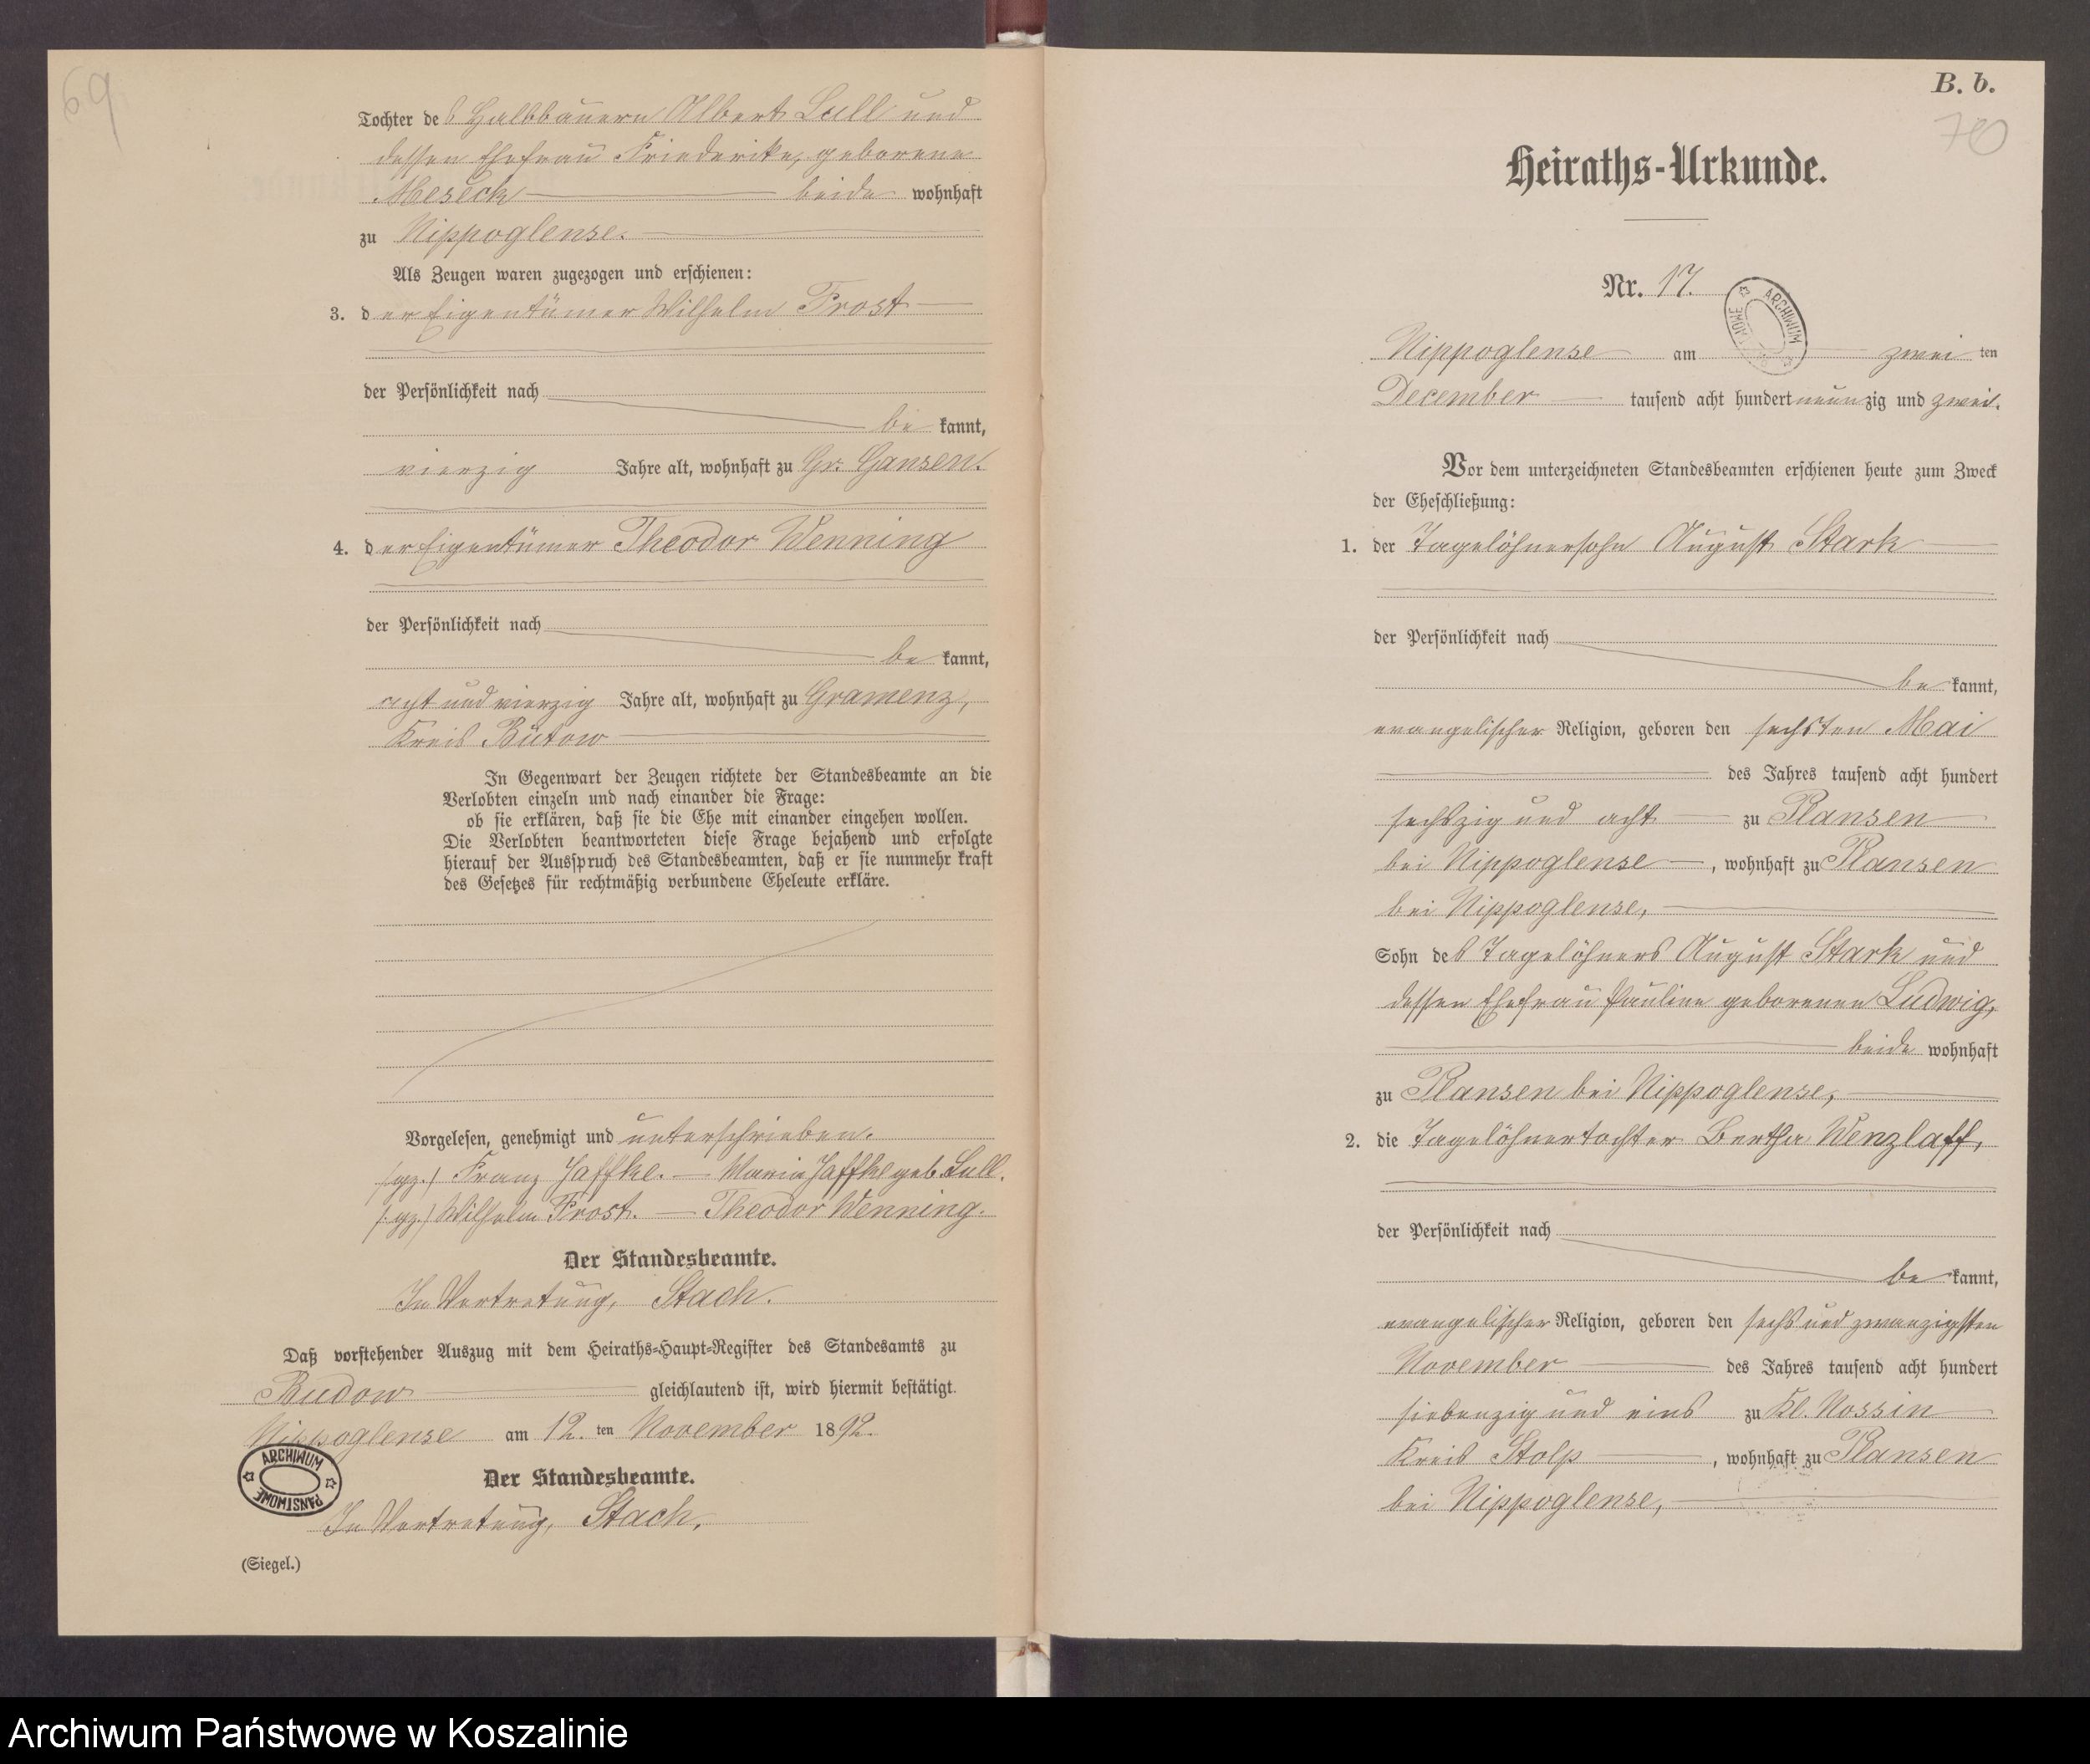 69
Tochter des Halbbauern Albert Lull und
dessen Ehefrau Friederike, geborene
Meseck beide wohnhaft
zu Nippoglense.
Als Zeugen waren zugezogen und erschienen:
3. der Eigentümer Wilhelm Frost
der Persönlichkeit nach
be kannt,
vierzig Jahre alt, wohnhaft zu Gr. Gansen.
4. der Eigentümer Theodor Wenning
der Persönlichkeit nach
be kannt,
acht und vierzig Jahre alt, wohnhaft zu Gramenz,
Kreis Bütow
In Gegenwart der Zeugen richtete der Standesbeamte an die
Verlobten einzeln und nach einander die Frage:
ob sie erklären, daß sie die Ehe mit einander eingehen wollen.
Die Verlobten beantworteten diese Frage bejahend und erfolgte
hierauf der Ausspruch des Standesbeamten, daß er sie nunmehr kraft
des Gesetzes für rechtmäßig verbundene Eheleute erkläre.
Vorgelesen, genehmigt und unterschrieben.
(gz.) Franz Jaffke. — Maria Jaffke geb. Lull.
(gz.) Wilhelm Frost. — Theodor Wenning.
Der Standesbeamte.
In Vertretung, Stach.
Daß vorstehender Auszug mit dem Heiraths-Haupt-Register des Standesamts zu
Budow gleichlautend ist, wird hiermit bestätigt.
Nippoglense am 12. ten November 1892.
Der Standesbeamte.
In Vertretung, Stach.
(Siegel.)
ARCHIWUM PAŃSTWOWE
B. b.
70
Heiraths-Urkunde.
Nr. 17.
ARCHIWUM
Nippoglense am zwei ten
December tausend acht hundert neunzig und zwei.
Vor dem unterzeichneten Standesbeamten erschienen heute zum Zweck
der Eheschließung:
1. der Tagelöhnersohn August Stark
der Persönlichkeit nach
be kannt,
evangelischer Religion, geboren den sechsten Mai
des Jahres tausend acht hundert
sechszig und acht zu Plansen
bei Nippoglense, wohnhaft zu Plansen
bei Nippoglense,
Sohn des Tagelöhners August Stark und
dessen Ehefrau Pauline geborenen Ludwig,
beide wohnhaft
zu Plansen bei Nippoglense,
2. die Tagelöhnertochter Bertha Wenzlaff,
der Persönlichkeit nach
be kannt,
evangelischer Religion, geboren den sechs und zwanzigsten
November des Jahres tausend acht hundert
siebenzig und eins zu Kl. Nossin
Kreis Stolp, wohnhaft zu Plansen
bei Nippoglense,
Archiwum Państwowe w Koszalinie